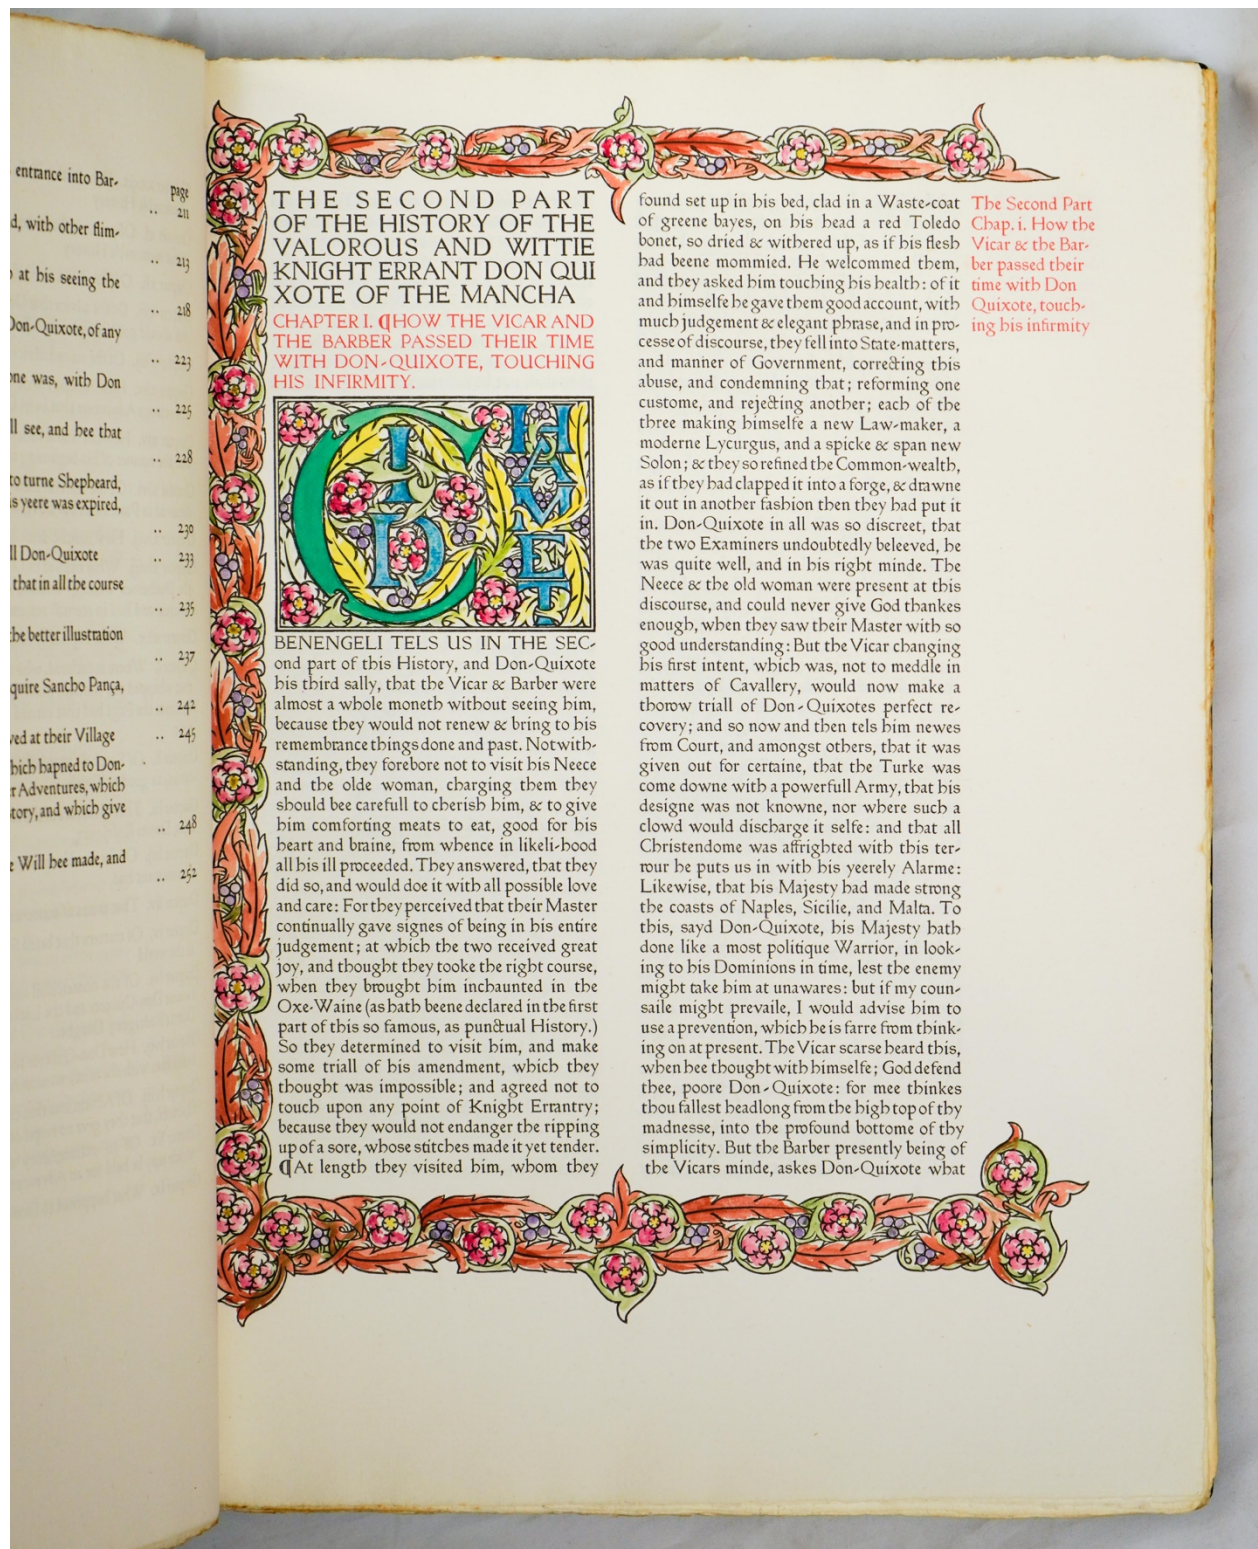 entrance into Bar-
page
.. 211
d, with other flim-
.. 213
at his seeing the
.. 218
Don-Quixote, of any
.. 223
one was, with Don
.. 225
ll see, and hee that
.. 228
to turne Shepheard,
s yeere was expired,
.. 230
ll Don-Quixote .. 233
that in all the course
.. 235
the better illustration
.. 237
quire Sancho Pança,
.. 242
ved at their Village .. 245
hich hapned to Don-
r Adventures, which
tory, and which give
.. 248
e Will hee made, and
.. 252
THE SECOND PART
OF THE HISTORY OF THE
VALOROUS AND WITTIE
KNIGHT ERRANT DON QUI
XOTE OF THE MANCHA
CHAPTER I. ¶HOW THE VICAR AND
THE BARBER PASSED THEIR TIME
WITH DON-QUIXOTE, TOUCHING
HIS INFIRMITY.
CID HAMET
BENENGELI TELS US IN THE SEC-
ond part of this History, and Don-Quixote
his third sally, that the Vicar & Barber were
almost a whole moneth without seeing him,
because they would not renew & bring to his
remembrance things done and past. Notwith-
standing, they forebore not to visit his Neece
and the olde woman, charging them they
should bee carefull to cherish him, & to give
him comforting meats to eat, good for his
heart and braine, from whence in likeli-hood
all his ill proceeded. They answered, that they
did so, and would doe it with all possible love
and care: For they perceived that their Master
continually gave signes of being in his entire
judgement; at which the two received great
joy, and thought they tooke the right course,
when they brought him inchaunted in the
Oxe-Waine (as hath beene declared in the first
part of this so famous, as punctual History.)
So they determined to visit him, and make
some triall of his amendment, which they
thought was impossible; and agreed not to
touch upon any point of Knight Errantry;
because they would not endanger the ripping
up of a sore, whose stitches made it yet tender.
¶At length they visited him, whom they
found set up in his bed, clad in a Waste-coat
of greene bayes, on his head a red Toledo
bonet, so dried & withered up, as if his flesh
had beene mommied. He welcommed them,
and they asked him touching his health: of it
and himselfe he gave them good account, with
much judgement & elegant phrase, and in pro-
cesse of discourse, they fell into State-matters,
and manner of Government, correcting this
abuse, and condemning that; reforming one
custome, and rejecting another; each of the
three making himselfe a new Law-maker, a
moderne Lycurgus, and a spicke & span new
Solon; & they so refined the Common-wealth,
as if they had clapped it into a forge, & drawne
it out in another fashion then they had put it
in. Don-Quixote in all was so discreet, that
the two Examiners undoubtedly beleeved, he
was quite well, and in his right minde. The
Neece & the old woman were present at this
discourse, and could never give God thankes
enough, when they saw their Master with so
good understanding: But the Vicar changing
his first intent, which was, not to meddle in
matters of Cavallery, would now make a
thorow triall of Don-Quixotes perfect re-
covery; and so now and then tels him newes
from Court, and amongst others, that it was
given out for certaine, that the Turke was
come downe with a powerfull Army, that his
designe was not knowne, nor where such a
clowd would discharge it selfe: and that all
Christendome was affrighted with this ter-
rour he puts us in with his yeerely Alarme:
Likewise, that his Majesty had made strong
the coasts of Naples, Sicilie, and Malta. To
this, sayd Don-Quixote, his Majesty hath
done like a most politique Warrior, in look-
ing to his Dominions in time, lest the enemy
might take him at unawares: but if my coun-
saile might prevaile, I would advise him to
use a prevention, which he is farre from think-
ing on at present. The Vicar scarse heard this,
when hee thought with himselfe; God defend
thee, poore Don-Quixote: for mee thinkes
thou fallest headlong from the high top of thy
madnesse, into the profound bottome of thy
simplicity. But the Barber presently being of
the Vicars minde, askes Don-Quixote what
The Second Part
Chap. i. How the
Vicar & the Bar-
ber passed their
time with Don
Quixote, touch-
ing his infirmity